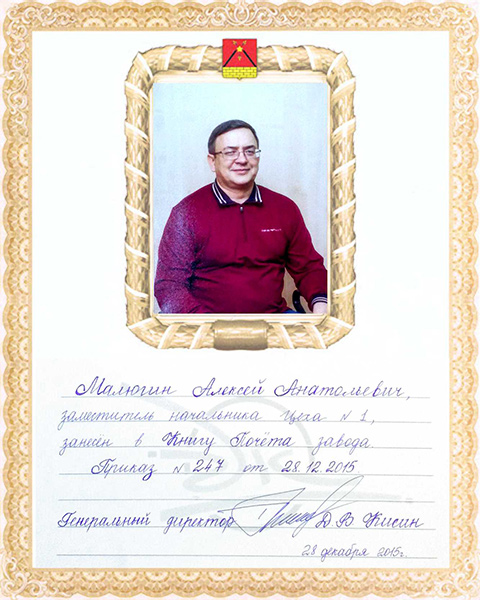 Малюгин Алексей Анатольевич,
заместитель начальника Цеха № 1,
занесён в Книгу Почёта завода.
Приказ № 247 от 28.12.2015
Генеральный директор Д В Кисин
28 декабря 2015г.